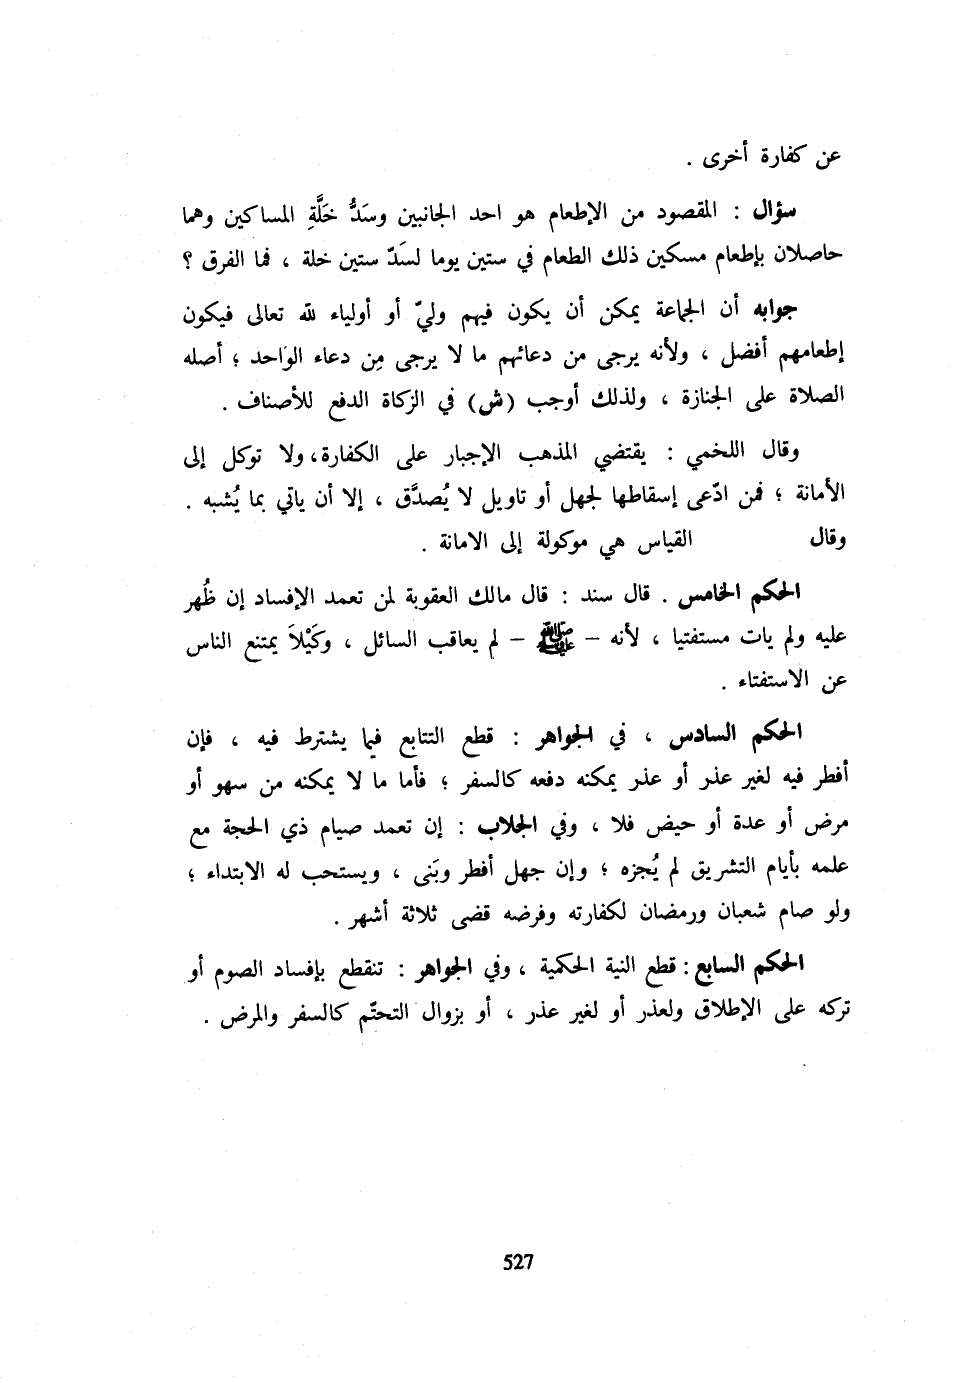 عن كفارة أخرى .
سؤال : المقصود من الإطعام هو احد الجانبين وسَدُّ خَلَّةِ المساكين وهما
حاصلان بإطعام مسكين ذلك الطعام في ستين يوما لسَدّ ستين خلة ، فما الفرق ؟
جوابه أن الجماعة يمكن أن يكون فيهم وليّ أو أولياء لله تعالى فيكون
إطعامهم أفضل ، ولأنه يرجى من دعائهم ما لا يرجى مِن دعاء الوَاحد ؛ أصله
الصلاة على الجنازة ، ولذلك أوجب (ش) في الزكاة الدفع للأصناف .
وقال اللخمي : يقتضي المذهب الإجبار على الكفارة، ولا توكل إلى
الأمانة ؛ فمن ادّعى إسقاطها لجهل أو تاويل لا يُصدَّق ، إلا أن ياتي بما يُشبه .
وقال القياس هي موكولة إلى الامانة .
الحكم الخامس . قال سند : قال مالك العقوبة لمن تعمد الإفساد إن ظُهر
عليه ولم يات مستفتيا ، لأنه – ﷺ – لم يعاقب السائل ، وكَيْلاَ يمتنع الناس
عن الاستفتاء .
الحكم السادس ، في الجواهر : قطع التتابع فيما يشترط فيه ، فإن
أفطر فيه لغير عذر أو عذر يمكنه دفعه كالسفر ؛ فأما ما لا يمكنه من سهو أو
مرض أو عدة أو حيض فلا ، وفي الجلاب : إن تعمد صيام ذي الحجة مع
علمه بأيام التشريق لم يُجزه ؛ وإن جهل أفطر وبَنى ، ويستحب له الابتداء ؛
ولو صام شعبان ورمضان لكفارته وفرضه قضى ثلاثة أشهر .
الحكم السابع : قطع النية الحكمية ، وفي الجواهر : تنقطع بإفساد الصوم أو
تركه على الإطلاق ولعذر أو لغير عذر ، أو بزوال التحتّم كالسفر والمرض .
527